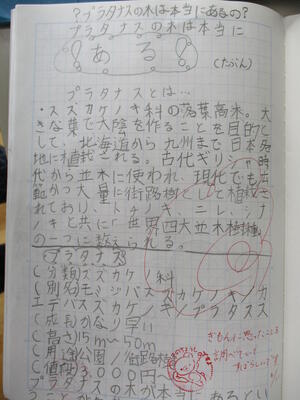 ?プラタナスの木は本当にあるの?
プラタナスの木は本当に
!ある!
(たぶん)
プラタナスとは…
・スズカケノキ科の落葉高木。大
きな葉で大陰を作ることを目的と
して、北海道から九州まで日本各
地に植栽される。古代ギリシャ時
代から並木に使われ、現代でも広
範かつ大量に街路樹として植栽さ
れており、トチノキ、ニレ、シナ
ノキと共に「世界四大並木樹種
の一つに数えられる。
プラタナス
(分類)スズカケ 科
(別名)モミジバスズカケノキ/カ
エデバスズカケノキ/プラタナス
(成長)かなり早い
(高さ)15m〜50m
(用途)公園/街路樹
(値段)3,000円〜
プラタナスの木が本当にあるとい
ぎもんに思ったことを
調べていて
すばらしいです